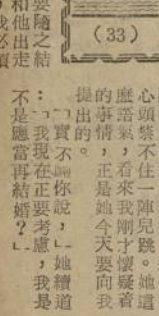 要隨之結
和他出走
我必須
（33）
心頭禁不住一陣兒跳。她這
麼語氣，看來我剛才懷疑着
的事情，正是她今天要向我
提出的。
「實不瞞你說，」她續道
：「我現在正要考慮，我是
不是應當再結婚？」